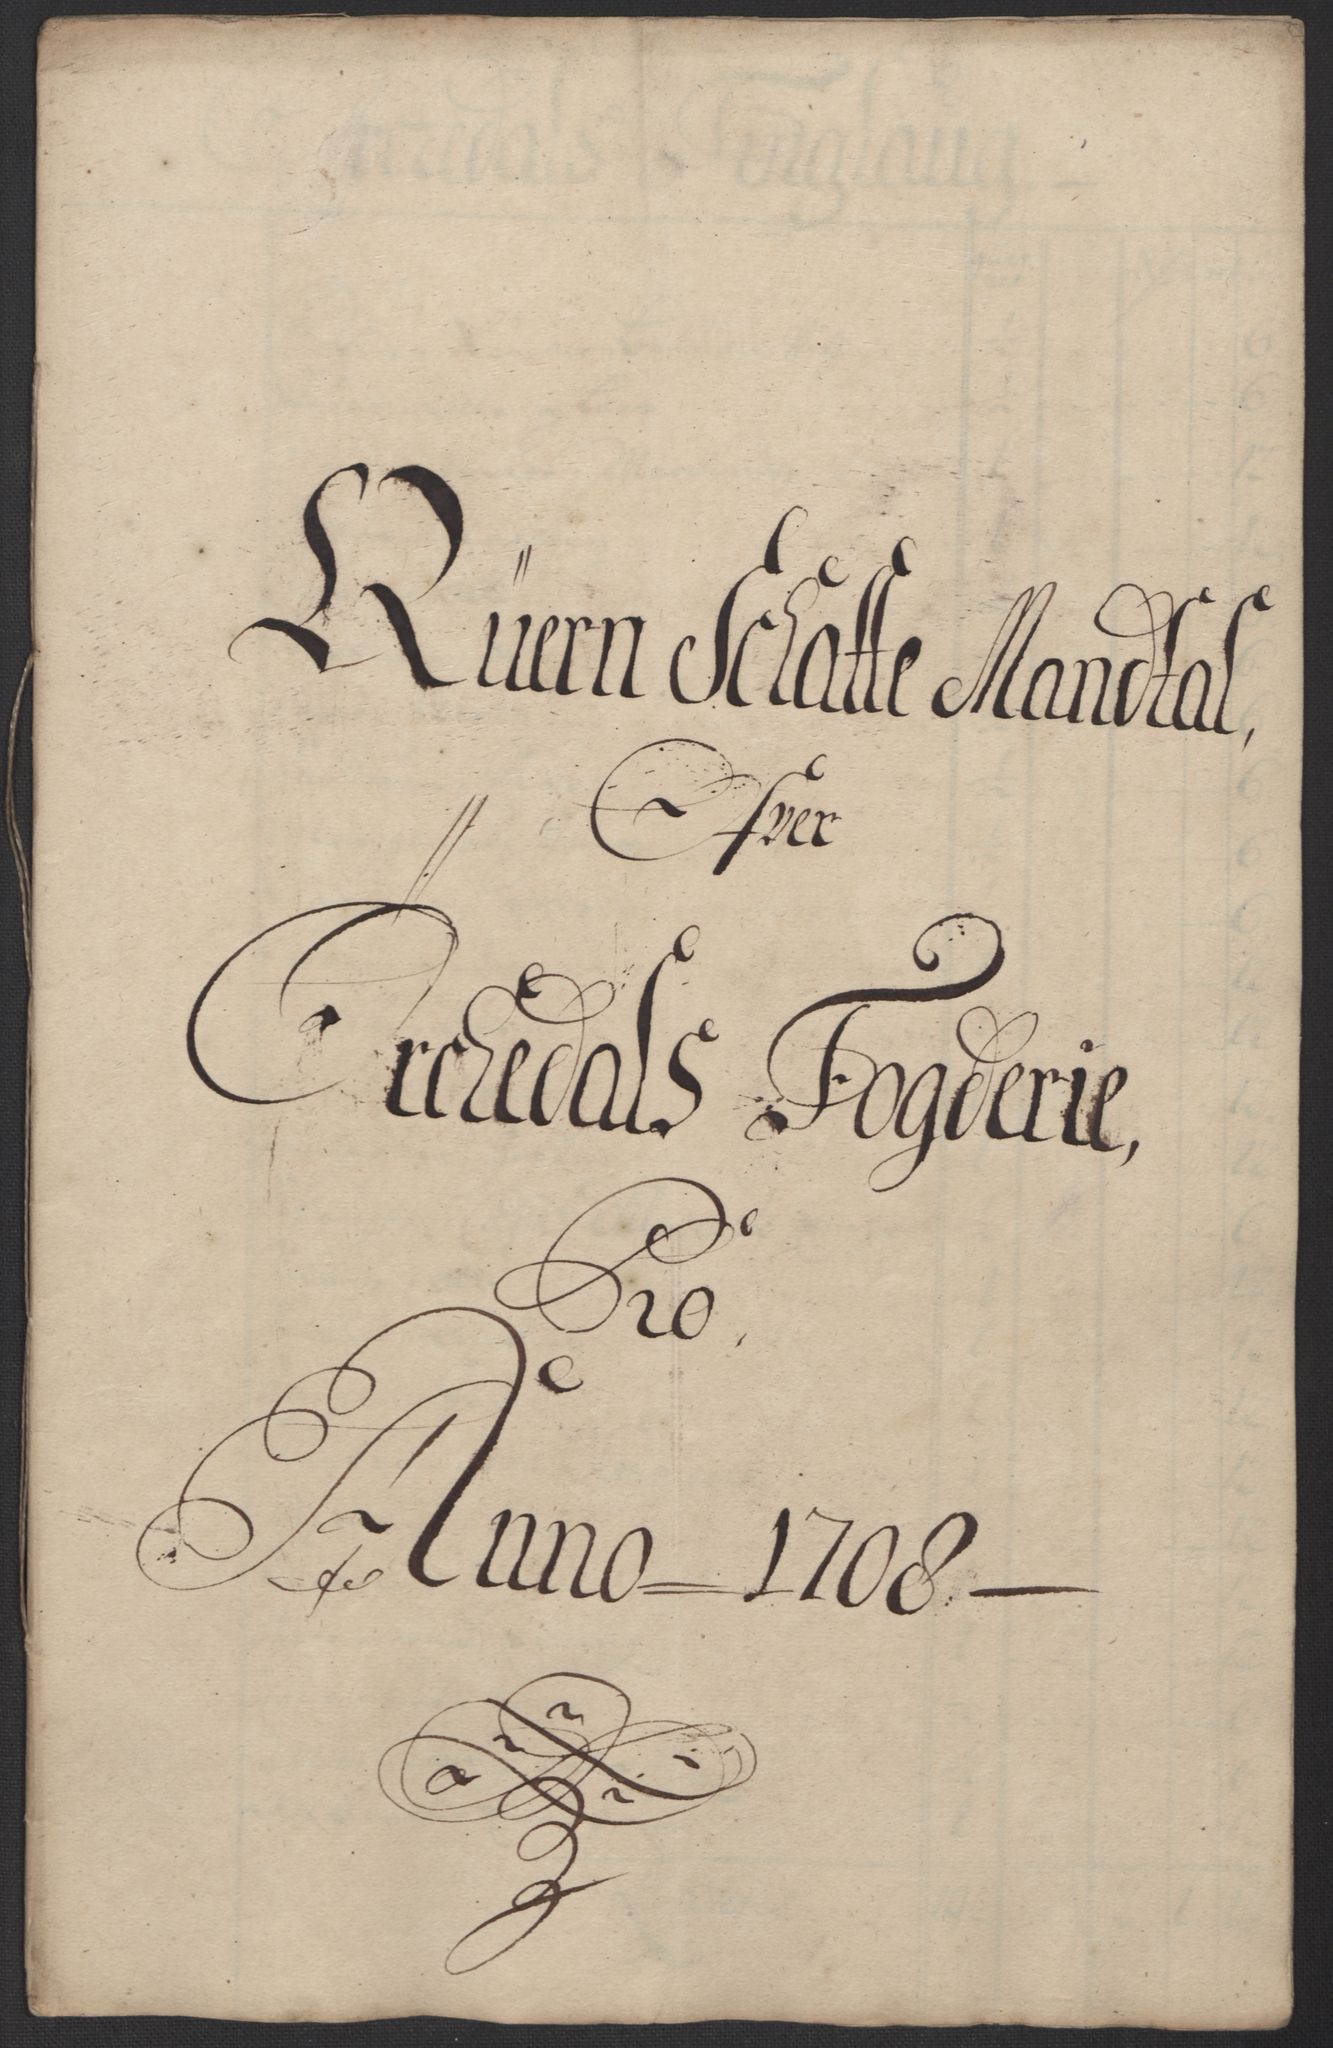 Qüern Schatte Mandtal,
Ofver
Orchedals Fogderie,
Pro,
Anno 1708